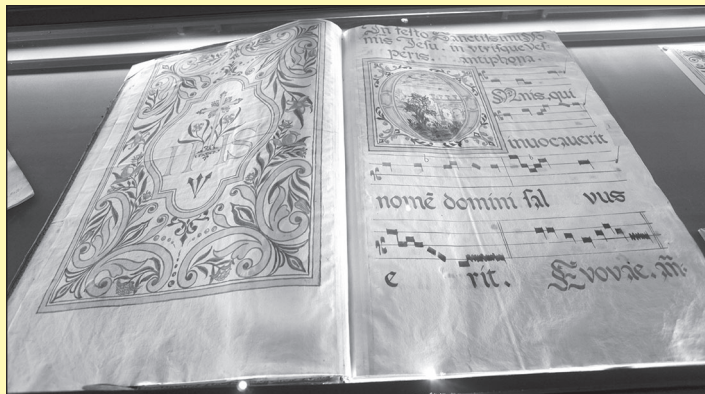 In festo Sanctissimi No
nis Jesu. in vtrisque ves
peris. antiphona.
Mnis. qui
inuocauerit
nomē domini sal vus
e rit. Evovae. añ.